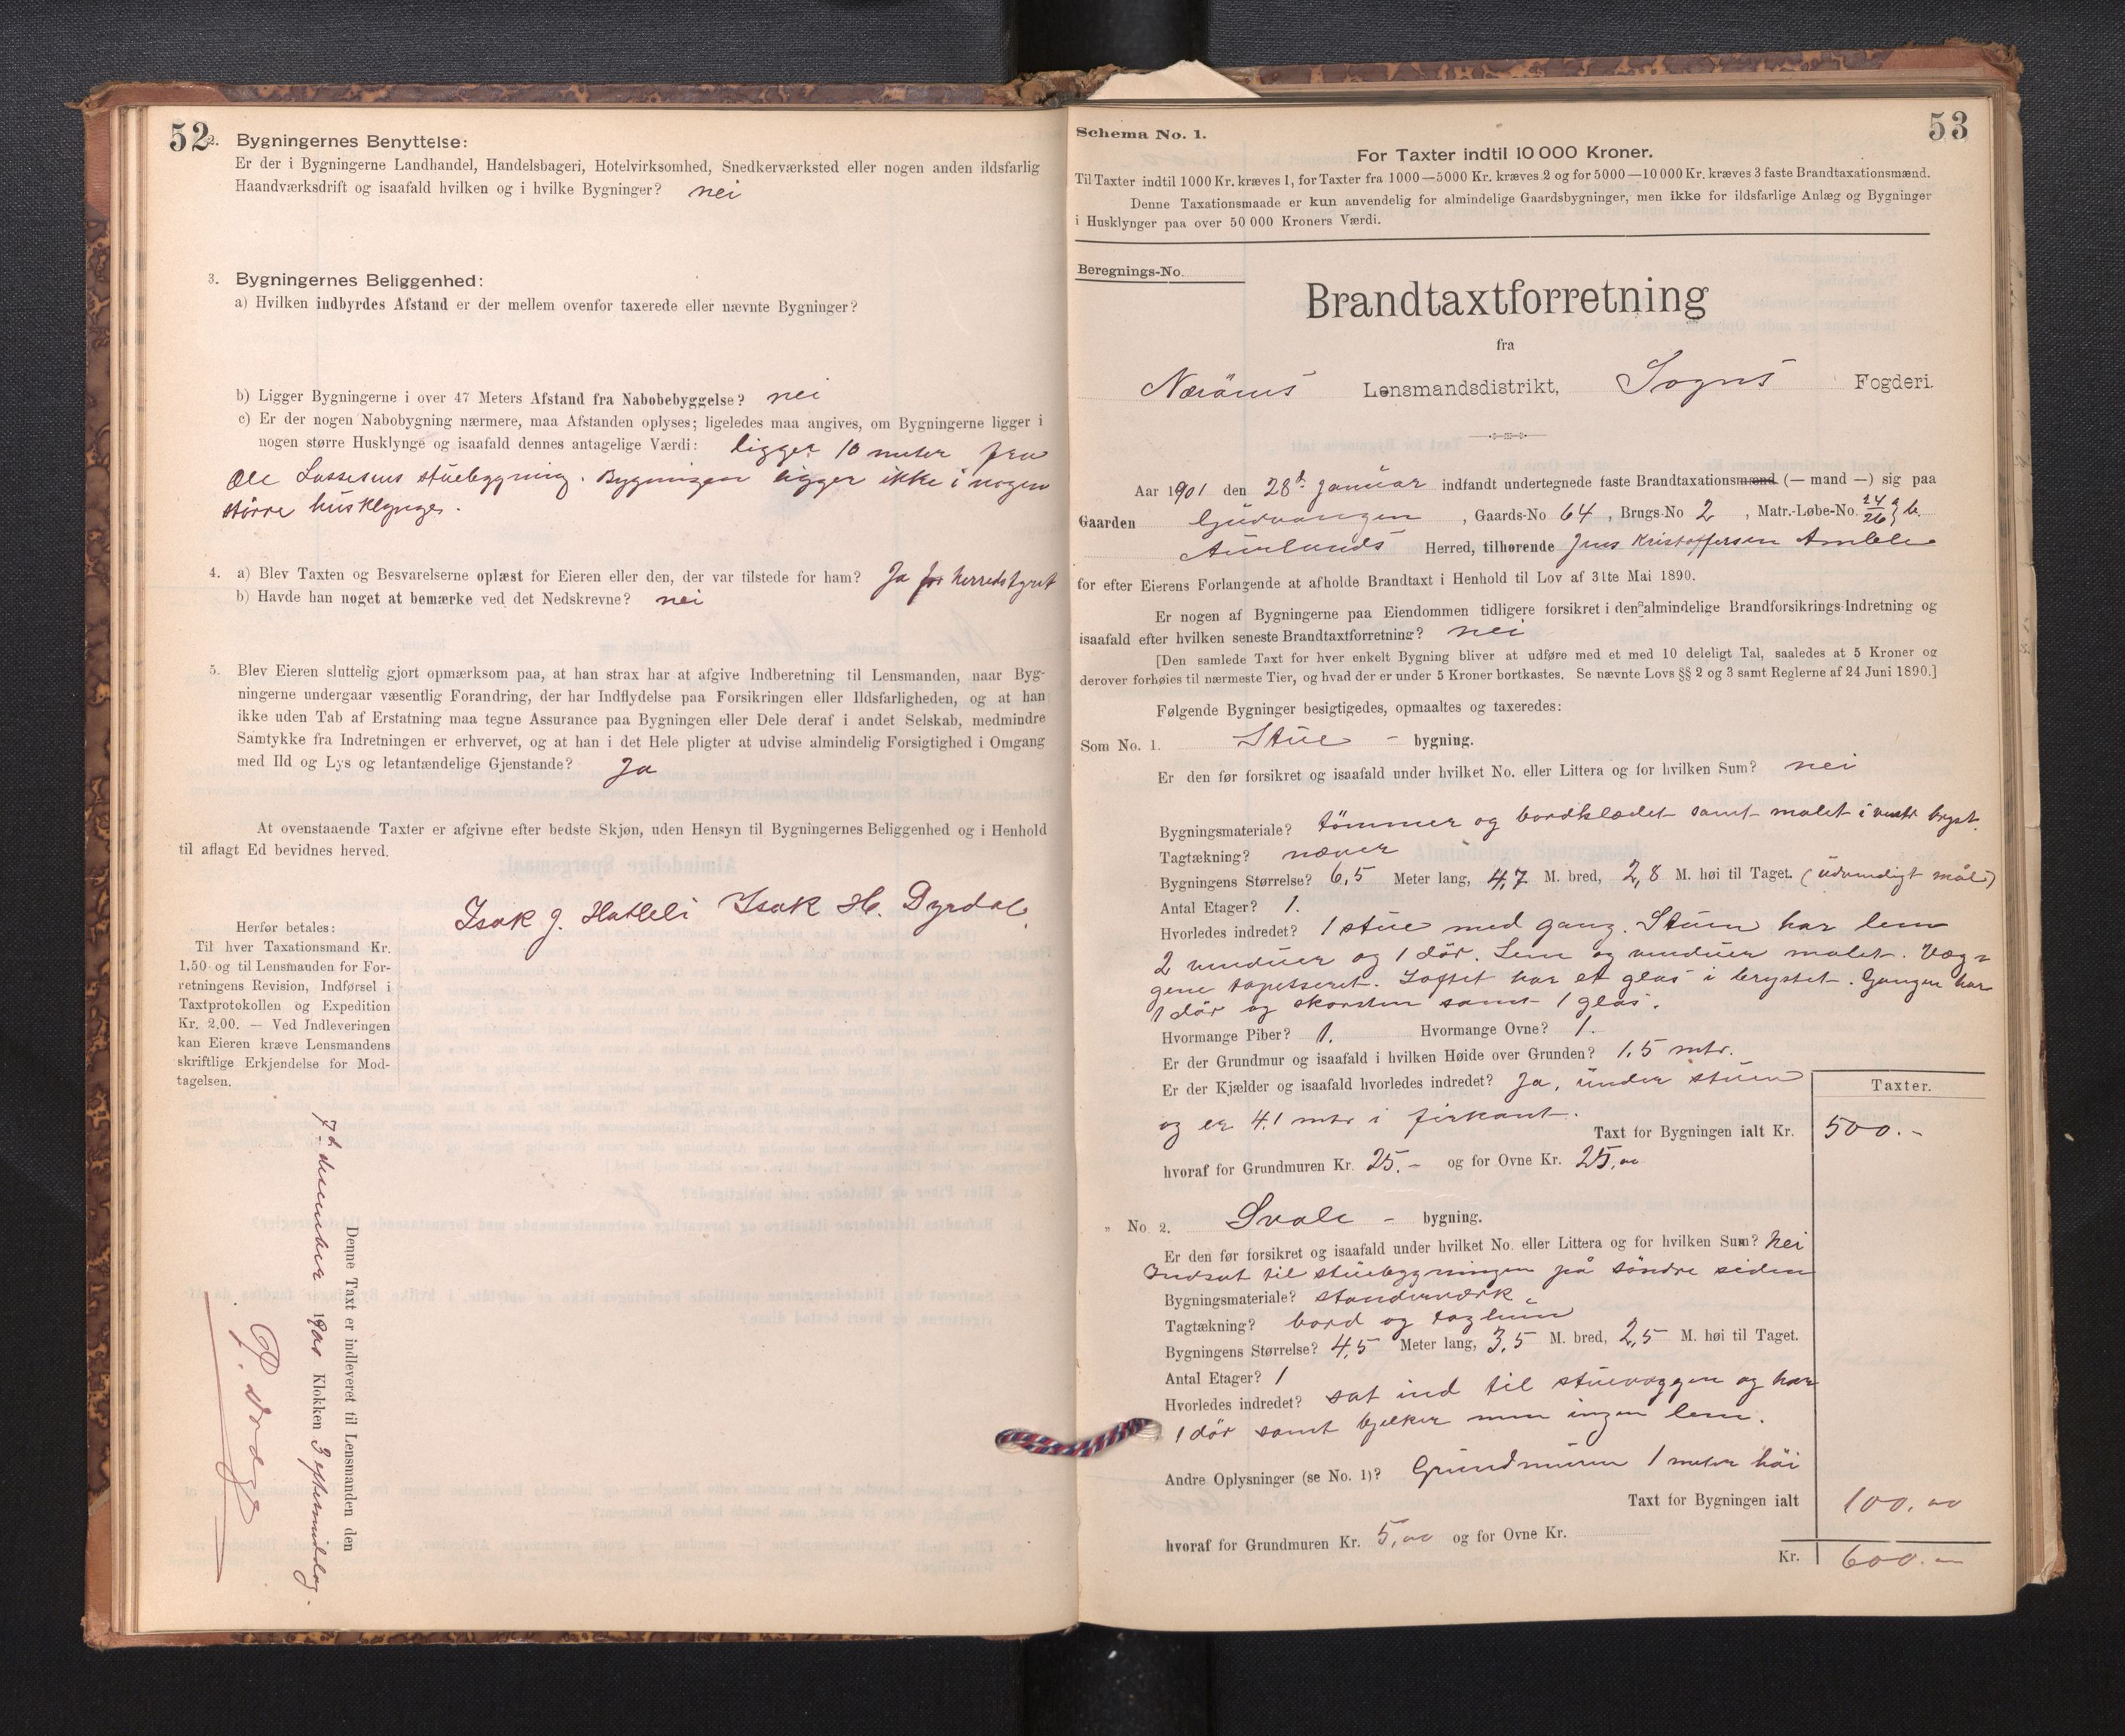 52
2. Bygningernes Benyttelse:
Er der i Bygningerne Landhandel, Handelsbageri, Hotelvirksomhed, Snedkerværksted eller nogen anden ildsfarlig
Haandværksdrift og isaafald hvilken og i hvilke Bygninger? nei
3. Bygningernes Beliggenhed:
a) Hvilken indbyrdes Afstand er der mellem ovenfor taxerede eller nævnte Bygninger?
b) Ligger Bygningerne i over 47 Meters Afstand fra Nabobebyggelse? nei
c) Er der nogen Nabobygning nærmere, maa Afstanden oplyses; ligeledes maa angives, om Bygningerne ligger i
nogen større Husklynge og isaafald dennes antagelige Værdi: ligger 10 meter fra
Ole Lassesens stuebygning. Bygningen ligger ikke i nogen
större husklynge.
4. a) Blev Taxten og Besvarelserne oplæst for Eieren eller den, der var tilstede for ham? Ja for herredstyret
b) Havde han noget at bemærke ved det Nedskrevne? nei
5. Blev Eieren sluttelig gjort opmærksom paa, at han strax har at afgive Indberetning til Lensmanden, naar Byg-
ningerne undergaar væsentlig Forandring, der har Indflydelse paa Forsikringen eller Ildsfarligheden, og at han
ikke uden Tab af Erstatning maa tegne Assurance paa Bygningen eller Dele deraf i andet Selskab, medmindre
Samtykke fra Indretningen er erhvervet, og at han i det Hele pligter at udvise almindelig Forsigtighed i Omgang
med Ild og Lys og letantændelige Gjenstande? Ja
At ovenstaaende Taxter er afgivne efter bedste Skjøn, uden Hensyn til Bygningernes Beliggenhed og i Henhold
til aflagt Ed bevidnes herved.
Isak J. Hatleli Isak H. Dyrdal
Herfor betales:
Til hver Taxationsmand Kr.
1.50 og til Lensmanden for For-
retningens Revision, Indførsel i
Taxtprotokollen og Expedition
Kr. 2.00. — Ved Indleveringen
kan Eieren kræve Lensmandens
skriftlige Erkjendelse for Mod-
tagelsen.
Denne Taxt er indleveret til Lensmanden den
7d desember 1900 Klokken 3 eftermiddag.
53
Schema No. 1.
For Taxter indtil 10 000 Kroner.
Til Taxter indtil 1000 Kr. kræves 1, for Taxter fra 1000—5000 Kr. kræves 2 og for 5000—10 000 Kr. kræves 3 faste Brandtaxationsmænd.
Denne Taxationsmaade er kun anvendelig for almindelige Gaardsbygninger, men ikke for ildsfarlige Anlæg og Bygninger
i Husklynger paa over 50 000 Kroners Værdi.
Beregnings-No.
Brandtaxtforretning
fra
Næröens Lensmandsdistrikt, Sogns Fogderi.
Aar 1901 den 28d Januar indfandt undertegnede faste Brandtaxationsmænd (— mand —) sig paa
Gaarden Gudvangen, Gaards-No 64, Brugs-No 2, Matr.-Løbe-No. 24/26 b.
Aurlands Herred, tilhørende Jens Kristoffersen Amble
for efter Eierens Forlangende at afholde Brandtaxt i Henhold til Lov af 31te Mai 1890.
Er nogen af Bygningerne paa Eiendommen tidligere forsikret i den almindelige Brandforsikrings-Indretning og
isaafald efter hvilken seneste Brandtaxtforretning? nei
[Den samlede Taxt for hver enkelt Bygning bliver at udføre med et med 10 deleligt Tal, saaledes at 5 Kroner og
derover forhøies til nærmeste Tier, og hvad der er under 5 Kroner bortkastes. Se nævnte Lovs §§ 2 og 3 samt Reglerne af 24 Juni 1890.]
Følgende Bygninger besigtigedes, opmaaltes og taxeredes:
Som No. 1. Stue - bygning.
Er den før forsikret og isaafald under hvilket No. eller Littera og for hvilken Sum? nei
Bygningsmateriale? tömmer og bordklædet samt malet i vestr bryst.
Tagtækning? næver
Bygningens Størrelse? 6,5 Meter lang, 4,7 M. bred, 2,8 M. høi til Taget. (udvendigt mål)
Antal Etager? 1.
Hvorledes indredet? 1 stue med gang. Stuen har lem
2 vinduer og 1 dör. Lem og vinduer malet. Væg-
gene tapetseret. Loftet har et glas i brystet. Gangen har
1 dör og skorsten samt 1 glas.
Hvormange Piber? 1. Hvormange Ovne? 1.
Er der Grundmur og isaafald i hvilken Høide over Grunden? 1,5 mtr.
Er der Kjælder og isaafald hvorledes indredet? Ja, under stuen
og er 4.1 mtr i firkant.
Taxter.
Taxt for Bygningen ialt Kr. 500.-
hvoraf for Grundmuren Kr. 25.- og for Ovne Kr. 25,00
„ No. 2. Svale - bygning.
Er den før forsikret og isaafald under hvilket No. eller Littera og for hvilken Sum? Nei
Indsat til stuebygningen på söndre siden
Bygningsmateriale? standerværk
Tagtækning? bord og taglem
Bygningens Størrelse? 4,5 Meter lang, 3,5 M. bred, 2,5 M. høi til Taget.
Antal Etager? 1
Hvorledes indredet? sat ind til stuevæggen og har
1 dör samt bjelker men ingen lem.
Andre Oplysninger (se No. 1)? Grundmuren 1 meter höi
Taxt for Bygningen ialt 100,00
hvoraf for Grundmuren Kr. 5,00 og for Ovne Kr.
Kr. 600.-